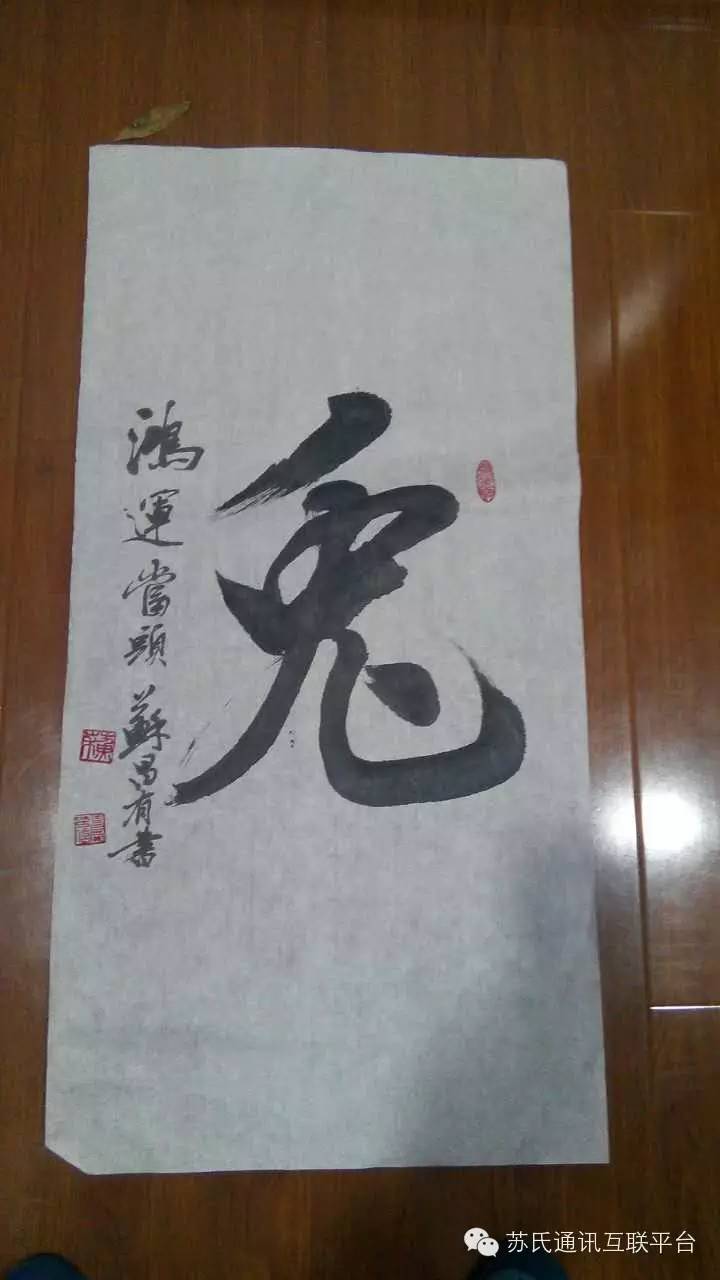 兔
鴻運當頭 蘇昌有書
苏氏通讯互联平台